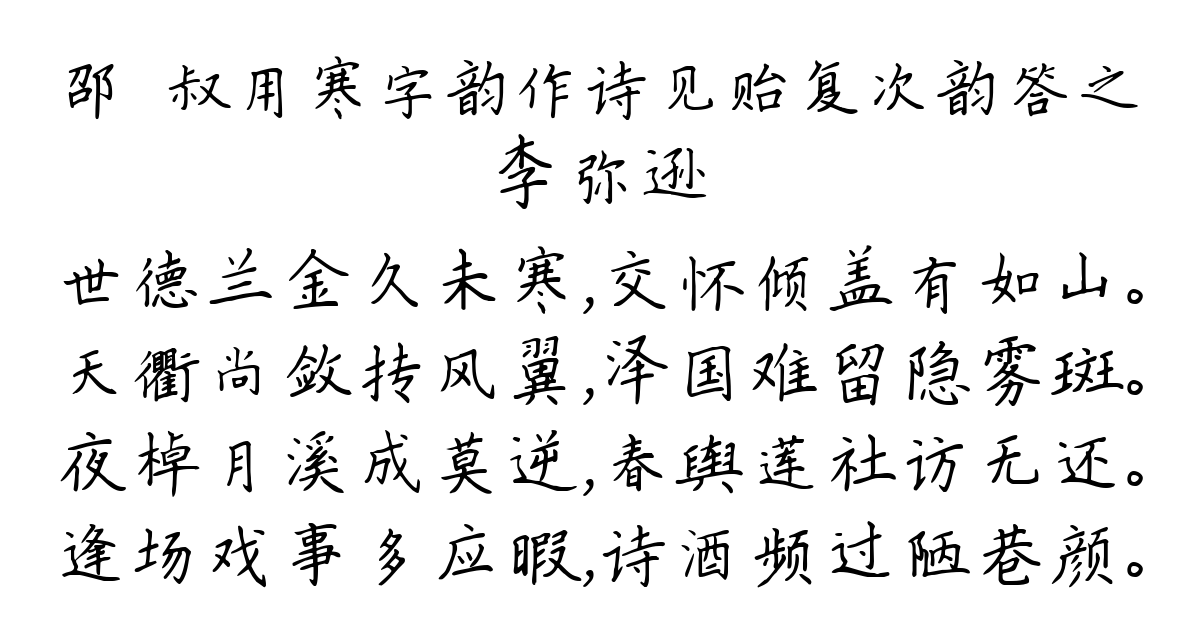 邵 叔用寒字韵作诗见贻复次韵答之
李弥逊
世德兰金久未寒,交怀倾盖有如山。
天衢尚敛抟风翼,泽国难留隐雾斑。
夜棹月溪成莫逆,春舆莲社访无还。
逢场戏事多应暇,诗酒频过陋巷颜。